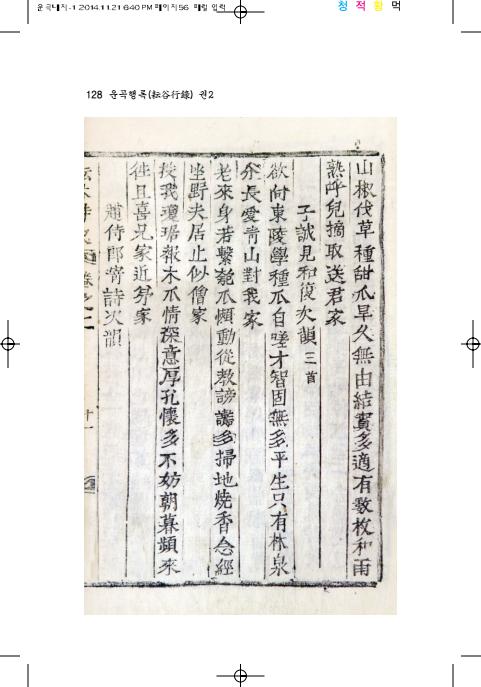 운곡내지-1 2014.11.21 6:40 PM 페이지56 매킬 입력
청 적 황 먹
128 운곡행록(耘谷行錄) 권2
山椒伐草種甜瓜旱久無由結實多適有數枚和雨
熟呼兒摘取送君家
子誠見和復次韻 三首
欲向東陵學種瓜自嗟才智固無多平生只有林泉
分長愛靑山對我家
老來身若繫匏瓜懶動從敎謗議多掃地燒香念經
坐野夫居止似僧家
投我瓊琚報木瓜情深意厚孔懷多不妨朝暮頻來
往且喜兄家近弟家
趙侍郞寄詩次韻